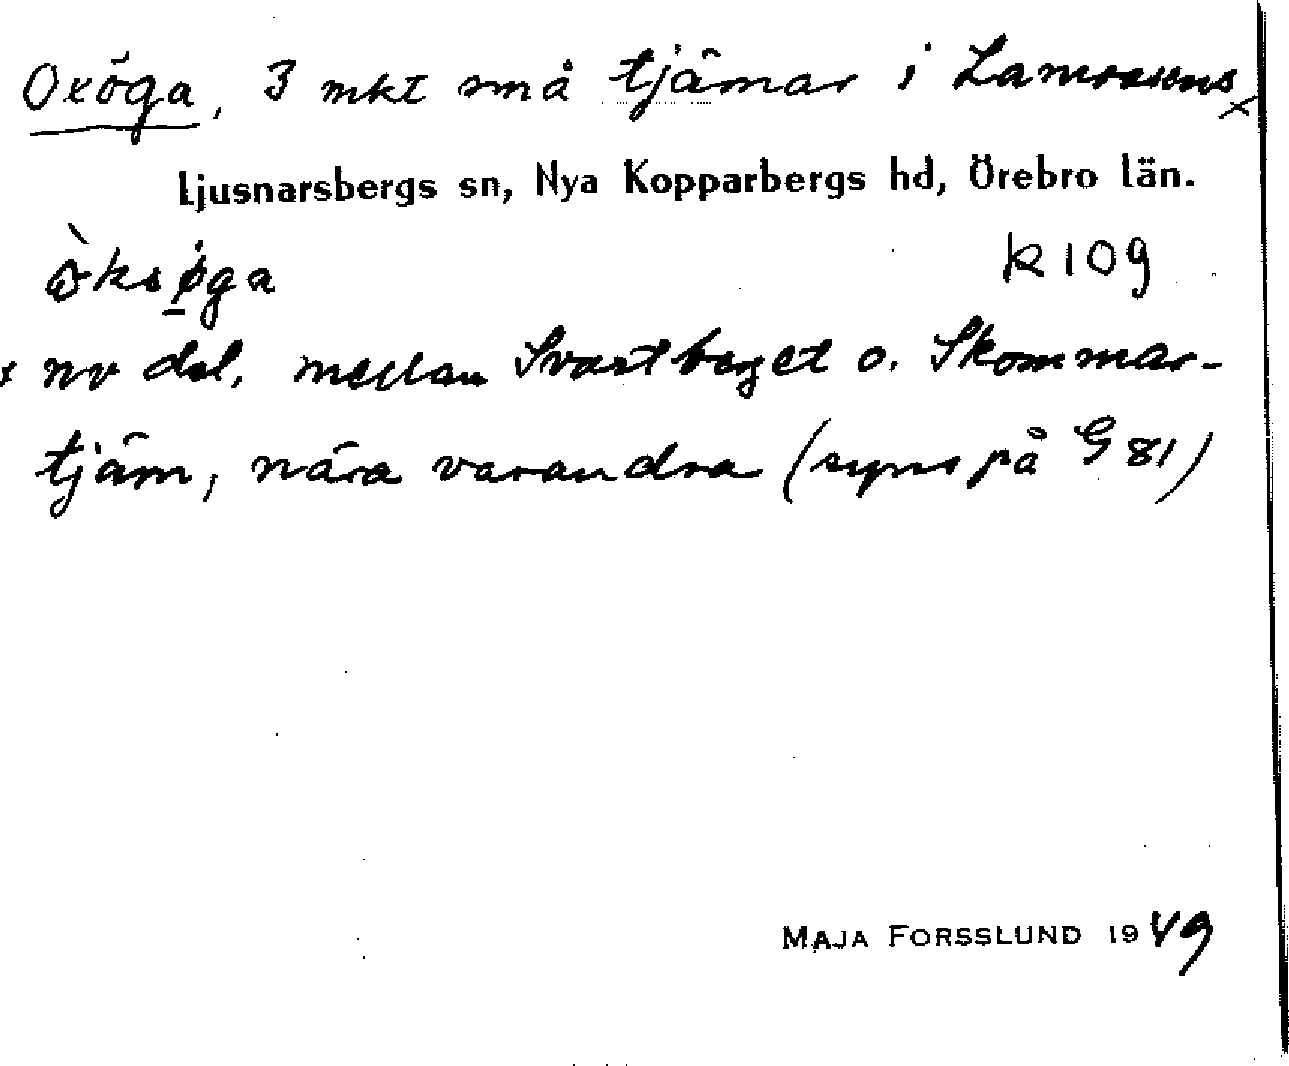 Oxöga, 3 mkt små tjärnar i
Ljusnarsbergs sn, Nya Kopparbergs hd, Örebro län.
R109
x nv del, mellan Svartberget o. Skommar-
tjärn, nära varandra (syns på G 81)
MAJA FORSSLUND 1949